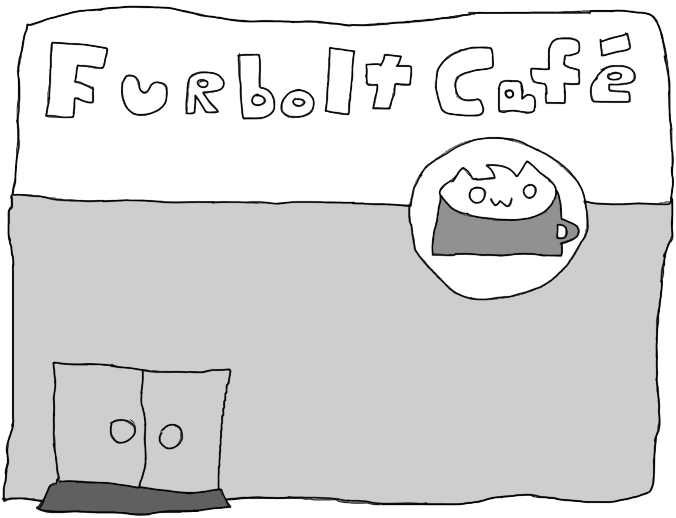 Furbolt Café